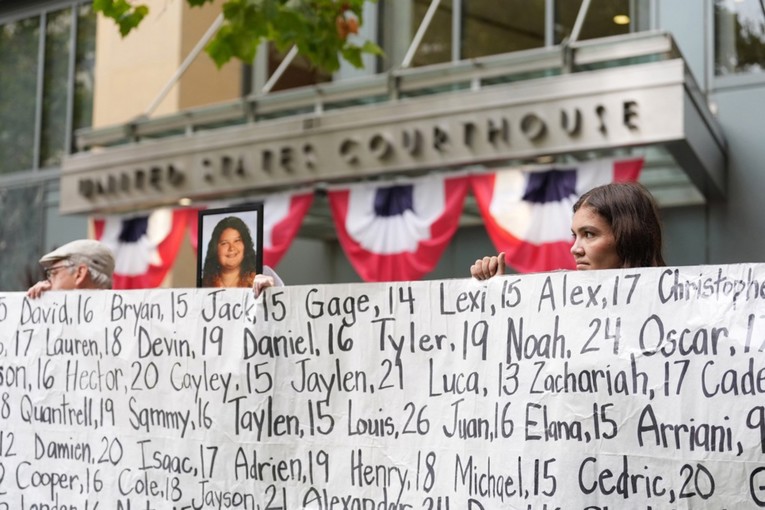 UNITED STATES COURTHOUSE
5 David, 16 Bryan, 15 Jack, 15 Gage, 14 Lexi, 15 Alex, 17 Christophe
, 17 Lauren, 18 Devin, 19 Daniel, 16 Tyler, 19 Noah, 24 Oscar, 17
son, 16 Hector, 20 Cayley, 15 Jaylen, 21 Luca, 13 Zachariah, 17 Cade
8 Quantrell, 19 Sammy, 16 Taylen, 15 Louis, 26 Juan, 16 Elana, 15 Arriani, 9
12 Damien, 20 Isaac, 17 Adrien, 19 Henry, 18 Michael, 15 Cedric, 20 G
2 Cooper, 16 Cole, 18 Jayson, 21 Alexander, 24